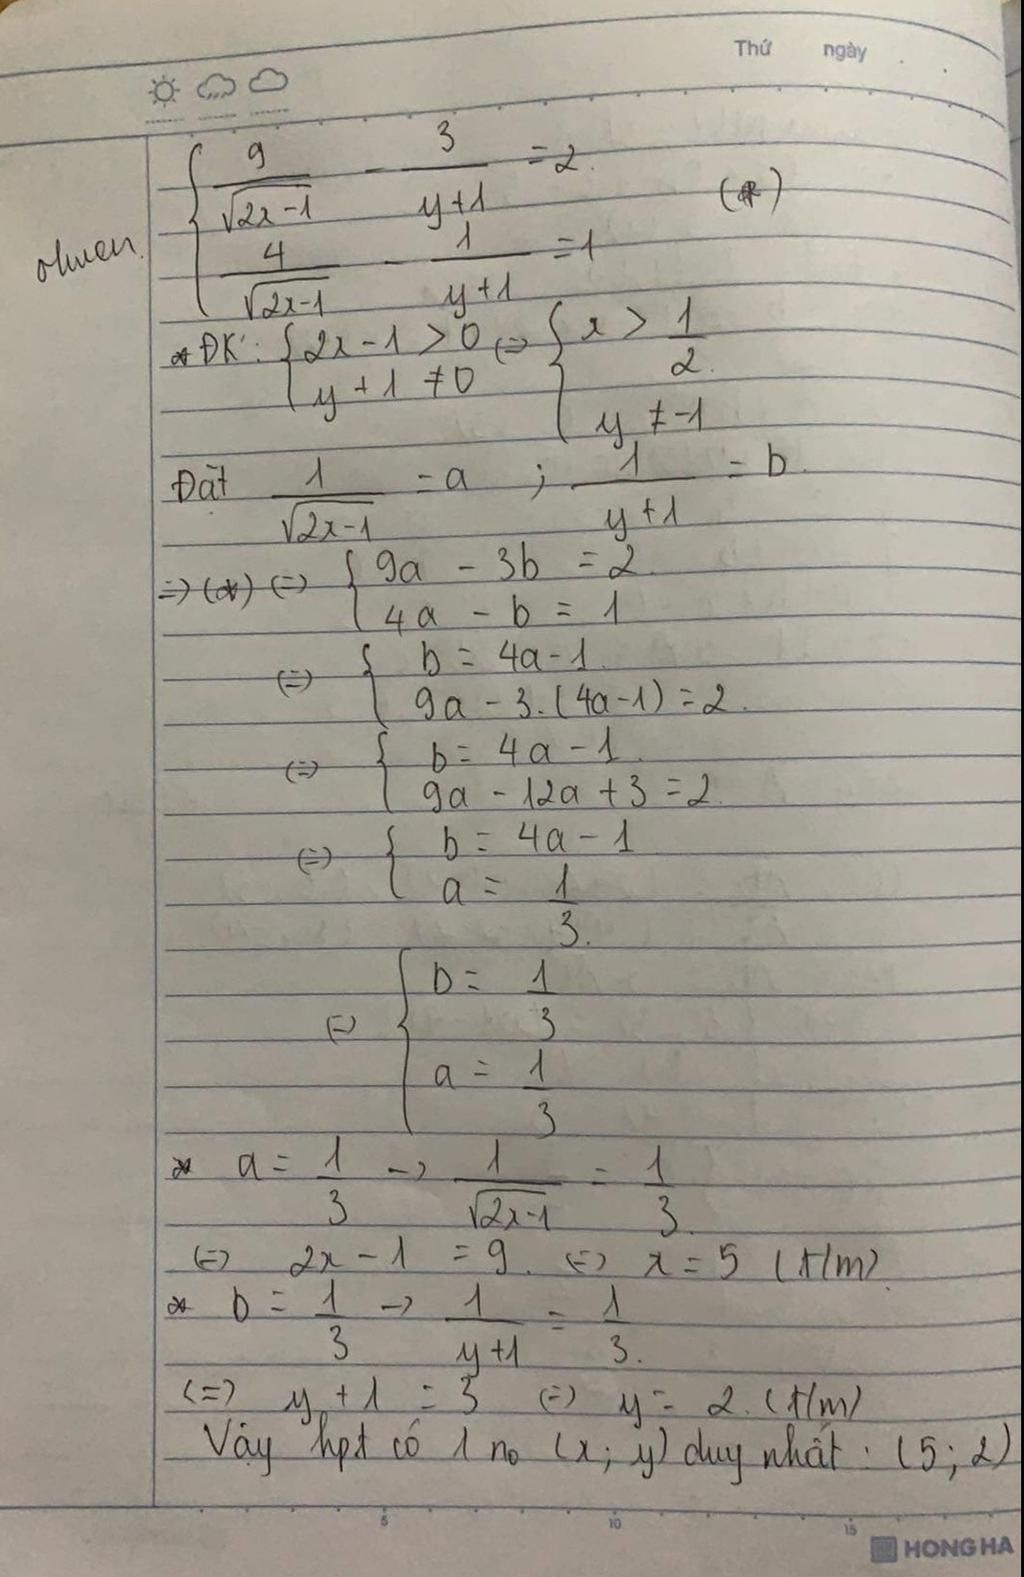 Thứ ngày
{ 9/√(2x-1) - 3/(y+1) = 2.
(*)
4/√(2x-1) - 1/(y+1) = 1
* ĐK: { 2x-1 > 0 (=) { x > 1/2.
y + 1 ≠ 0 y ≠ -1
Đặt 1/√(2x-1) = a ; 1/(y+1) = b.
=) (*) (=) { 9a - 3b = 2.
4a - b = 1
(=) { b = 4a - 1.
9a - 3.(4a-1) = 2.
(=) { b = 4a - 1.
9a - 12a + 3 = 2.
(=) { b = 4a - 1
a = 1/3.
(=) { b = 1/3
a = 1/3
* a = 1/3 -> 1/√(2x-1) = 1/3.
(=) 2x - 1 = 9. (=) x = 5 (t/m)
* b = 1/3 -> 1/(y+1) = 1/3.
(=) y + 1 = 3 (=) y = 2. (t/m)
Vậy hpt có 1 no (x; y) duy nhất : (5; 2)
5 10 15
HONG HA